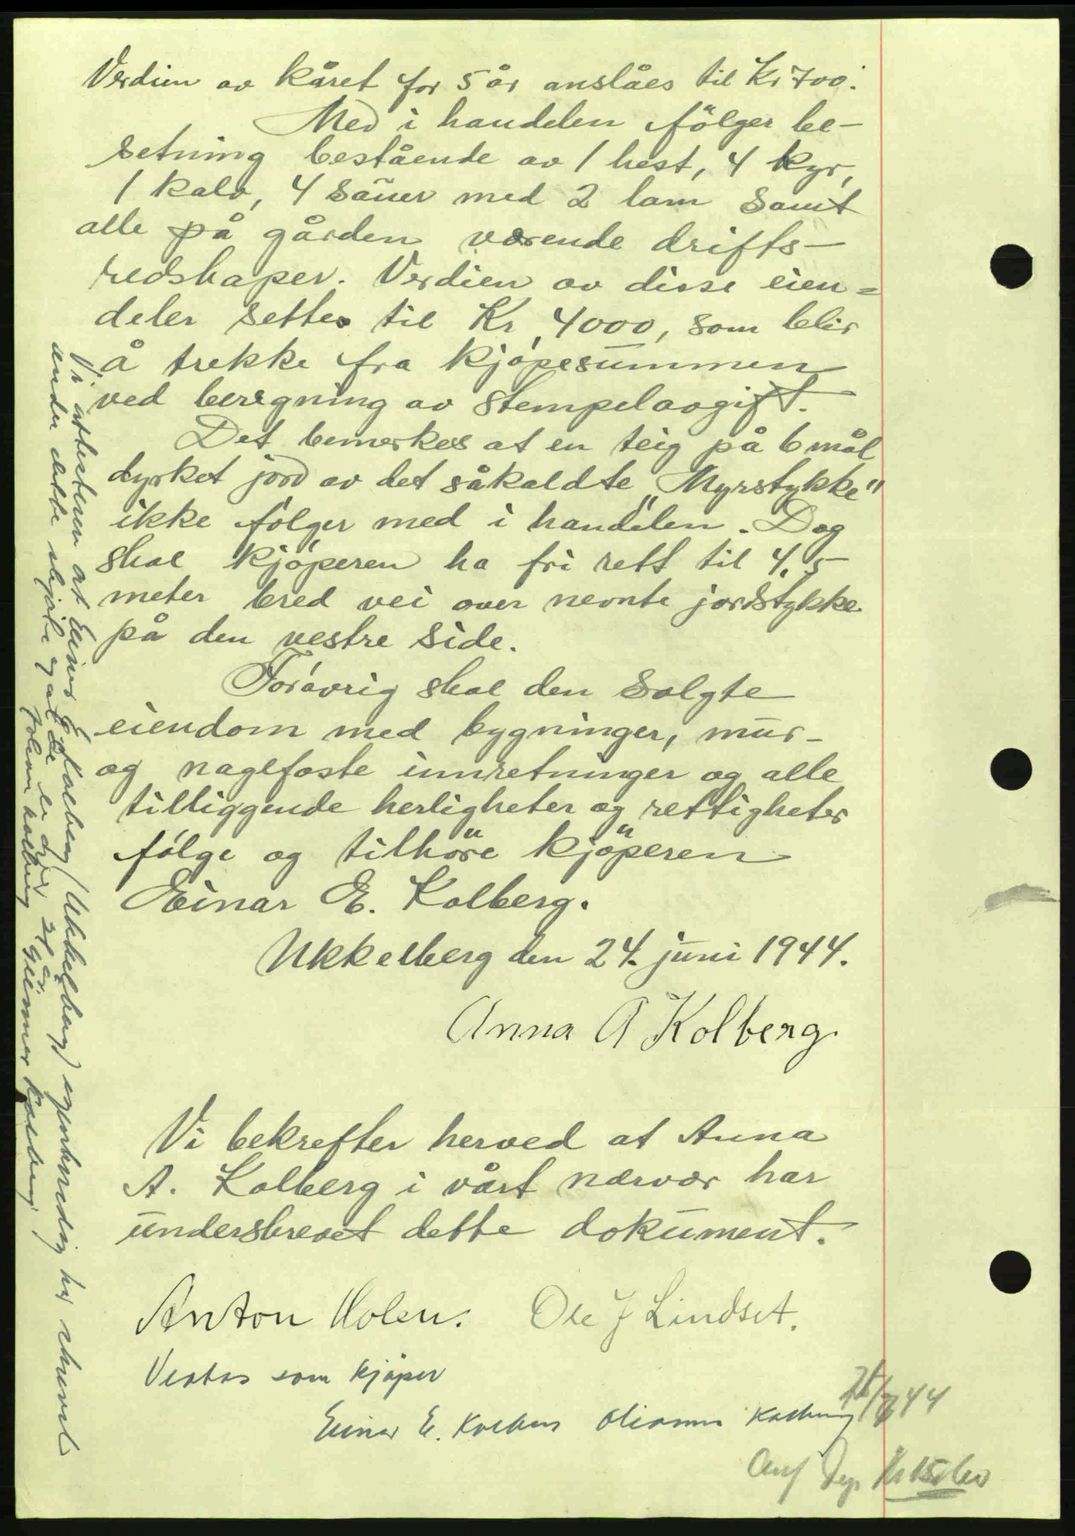 Verdien av kåret for 5 år anslåes til Kr 700.
Med i handelen følger be-
setning bestående av 1 hest, 4 kyr,
1 kalv, 4 sauer med 2 lam samt
alle på gården værende drifts-
redskaper. Verdien av disse eien=
deler settes til Kr. 4000, som blir
å trekke fra kjøpesummen
ved beregning av stempelavgift.
Det bemerkes at en teig på 6 mål
dyrket jord av det såkaldte "Myrstykke"
ikke følger med i handelen. Dog
skal kjøperen ha fri rett til 4,5
meter bred vei over nevnte jordstykke
på den vestre side.
Forøvrig skal den solgte
eiendom med bygninger, mur-
og nagefaste innretninger og alle
tilliggende herligheter og rettigheter
følge og tilhøre kjøperen
Einar E. Kolberg.
Ukkelberg den 24. juni 1944.
Anna A Kolberg.
Vi bekrefter herved at Anna
A. Kolberg i vårt nærvær har
underskrevet dette dokument.
Anton Holen. Ole J Lindset.
Vedtas som kjøper
Einar E. Kolberg Kolberg
44
Vi attesterer at Einar E Kolberg (Ukkelberg) egenhendig har skrevet
under dette skjøte og at de er over 21 år.
Johan Kolberg Gunnar Kolberg